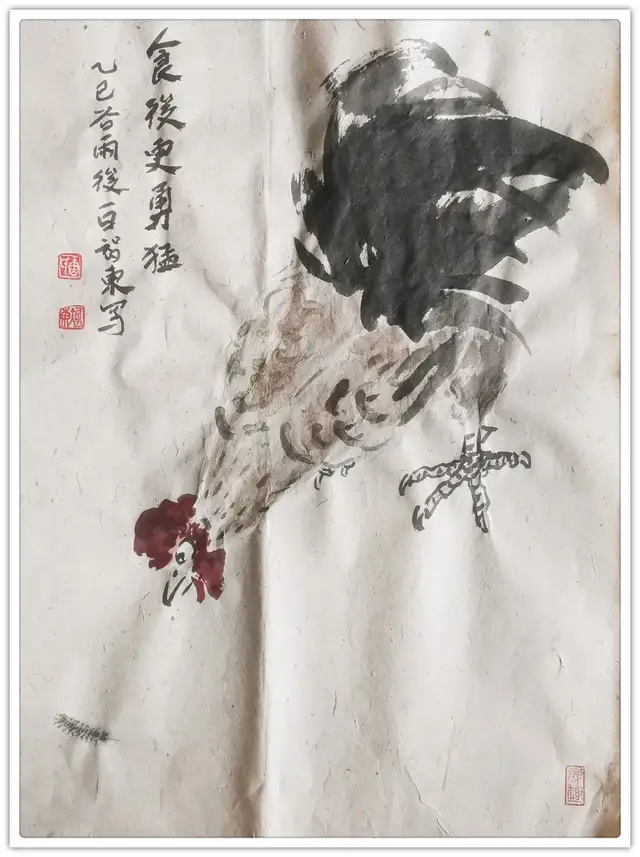 食後更勇猛
乙巳谷雨後一日智東写